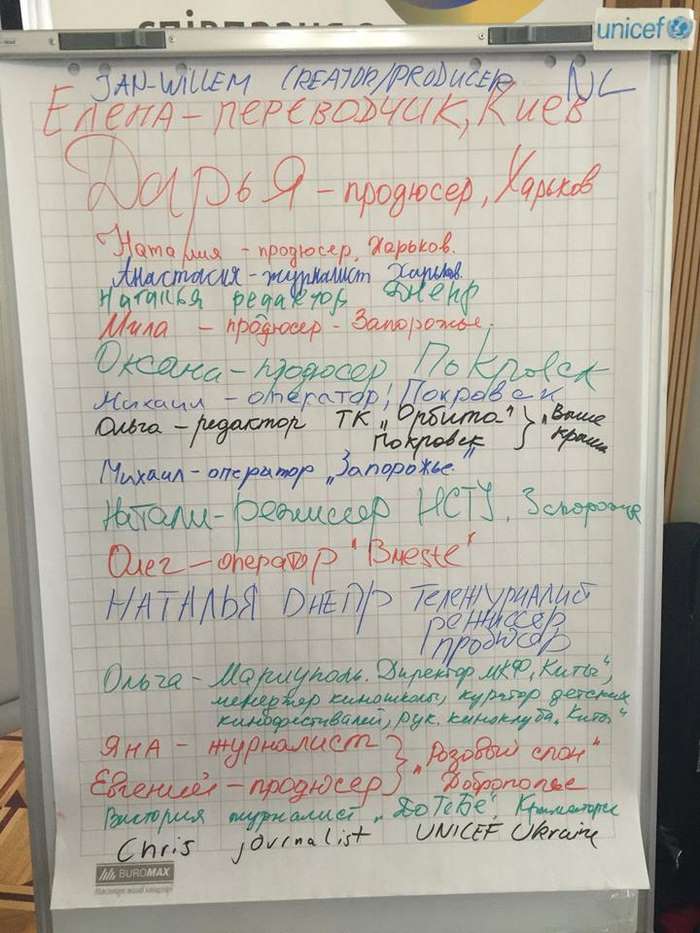 unicef
JAN-WILLEM CREATOR/PRODUCER NL
Елена - переводчик, Киев
Дарья - продюсер, Харьков
Наталия - продюсер, Харьков.
Анастасия - журналист Харьков.
Наталья редактор Днепр
Мила - продюсер - Запорожье.
Оксана - продюсер Покровск
Михаил - оператор, Покровск
Ольга - редактор ТК "Орбита" } "Выше
Покровск крыши
Михаил - оператор "Запорожье"
Натали - режиссер НСТУ, Запорожье
Олег - оператор "Вместе"
НАТАЛЬЯ DНЕПР Тележурналист
режиссер
продюсер
Ольга - Мариуполь. Директор МКФ "Киты",
менеджер киношколы, куратор детских
кинофестивалей, рук. киноклуба "Киты"
Яна - журналист } "Розовый слон"
Евгений - продюсер } Доброполье
Виктория журналист "До ТеБе", Краматорск
Chris journalist UNICEF Ukraine
BUROMAX